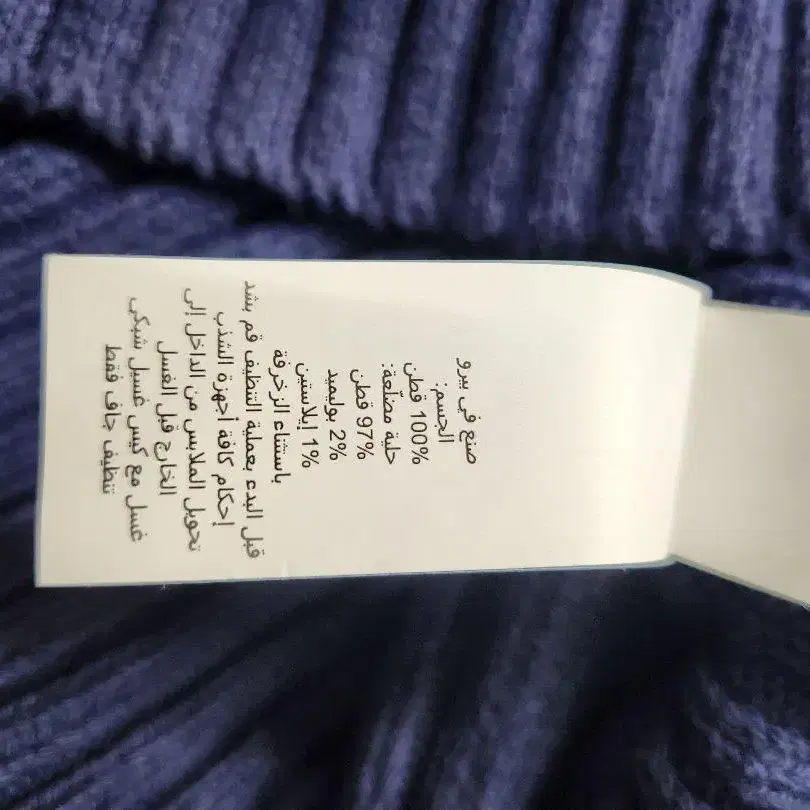 صنع في بيرو
الجسم:
100% قطن
حلية مضلّعة:
97% قطن
2% بوليميد
1% إيلاستين
باستثناء الزخرفة
قبل البدء بعملية التنظيف قم بشد
إحكام كافة أجهزة الشذب
تحويل الملابس من الداخل إلى
الخارج قبل الغسل
غسل مع كيس غسيل شبكي
تنظيف جاف فقط